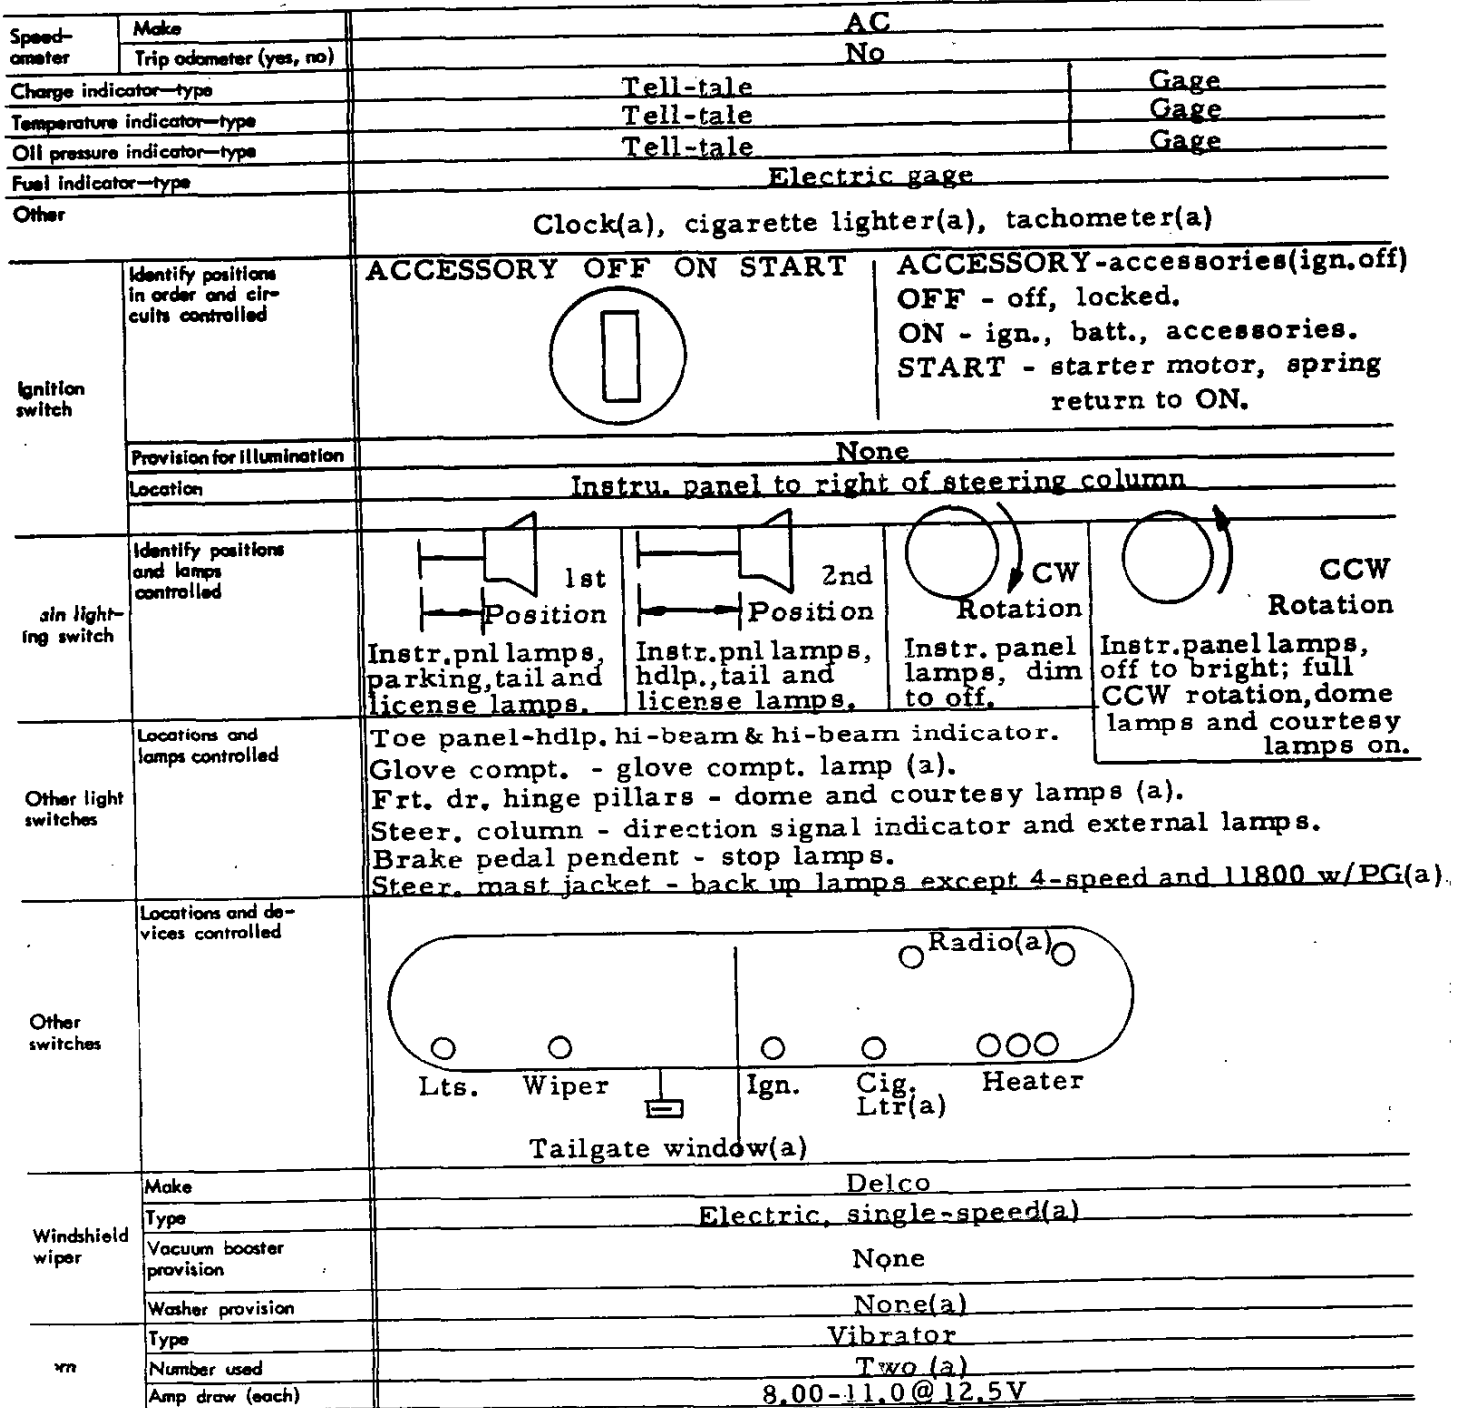 Speed-
ometer
Make
AC
Trip odometer (yes, no)
No
Charge indicator—type
Tell-tale
Gage
Temperature indicator—type
Tell-tale
Gage
Oil pressure indicator—type
Tell-tale
Gage
Fuel indicator—type
Electric gage
Other
Clock(a), cigarette lighter(a), tachometer(a)
Ignition
switch
Identify positions
in order and cir-
cuits controlled
ACCESSORY OFF ON START
ACCESSORY-accessories(ign.off)
OFF - off, locked.
ON - ign., batt., accessories.
START - starter motor, spring
return to ON.
Provision for illumination
None
Location
Instru. panel to right of steering column
ain light-
ing switch
Identify positions
and lamps
controlled
1st
Position
Instr.pnl lamps,
parking,tail and
license lamps.
2nd
Position
Instr.pnl lamps,
hdlp.,tail and
license lamps.
CW
Rotation
Instr. panel
lamps, dim
to off.
CCW
Rotation
Instr.panel lamps,
off to bright; full
CCW rotation,dome
lamps and courtesy
lamps on.
Other light
switches
Locations and
lamps controlled
Toe panel-hdlp. hi-beam & hi-beam indicator.
Glove compt. - glove compt. lamp (a).
Frt. dr. hinge pillars - dome and courtesy lamps (a).
Steer. column - direction signal indicator and external lamps.
Brake pedal pendent - stop lamps.
Steer. mast jacket - back up lamps except 4-speed and 11800 w/PG(a).
Other
switches
Locations and de-
vices controlled
Radio(a)
Lts.
Wiper
Ign.
Cig.
Ltr(a)
Heater
Tailgate window(a)
Windshield
wiper
Make
Delco
Type
Electric, single-speed(a)
Vacuum booster
provision
None
Washer provision
None(a)
rn
Type
Vibrator
Number used
Two (a)
Amp draw (each)
8.00-11.0@12.5V